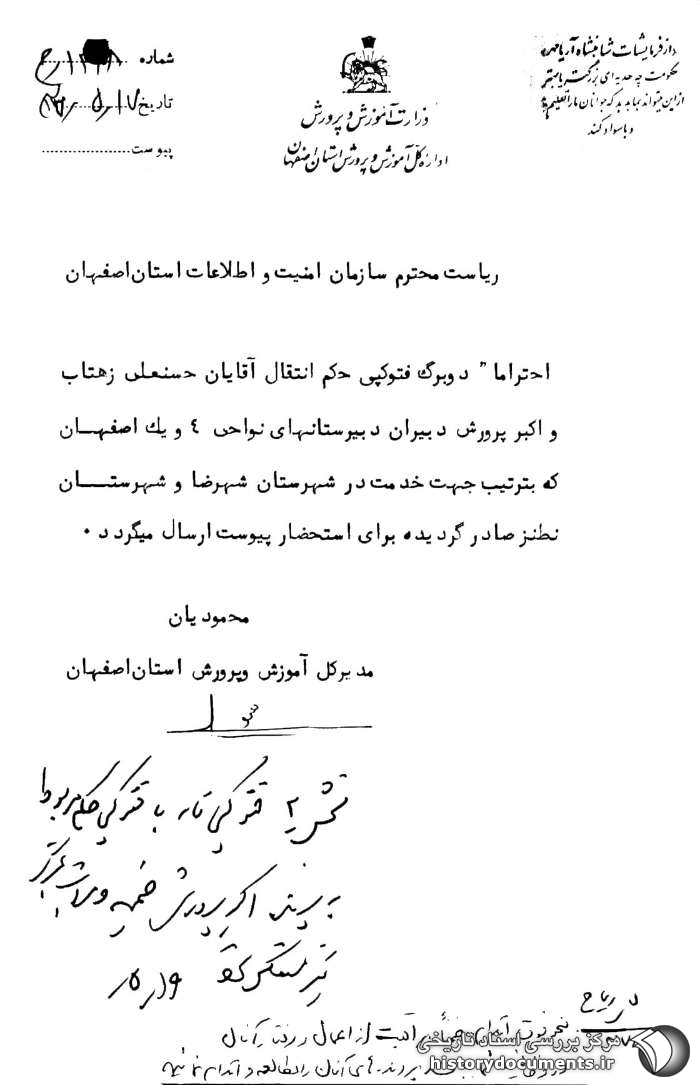 از فرمایشات شاهنشاه آریامهر
حکومت چه هدیه‌ای بزرگتر یا بهتر
از این میتواند بما بدهد که جوانان ما را تعلیم
و با سواد کند
وزارت آموزش و پرورش
اداره کل آموزش و پرورش استان اصفهان
شماره
تاریخ
پیوست
ریاست محترم سازمان امنیت و اطلاعات استان اصفهان
احتراما" دوبرگ فتوکپی حکم انتقال آقایان حسنعلی زهتاب
و اکبر پرورش دبیران دبیرستانهای نواحی ٤ و یك اصفهــان
که بترتیب جهت خدمت در شهرستان شهرضا و شهرستــــان
نطنز صادر گردیده برای استحضار پیوست ارسال میگردد ۰
محمودیان
مدیرکل آموزش وپرورش استان اصفهان
بخش ۲ فتوکپی نامه با فتوکپی حکم مربوط
اکبر پرورش ضمیمه و مراتب بمرکز
نیز منعکس
از اعمال و رفتار آنان
مرکز بررسی اسناد تاریخی
historydocuments.ir